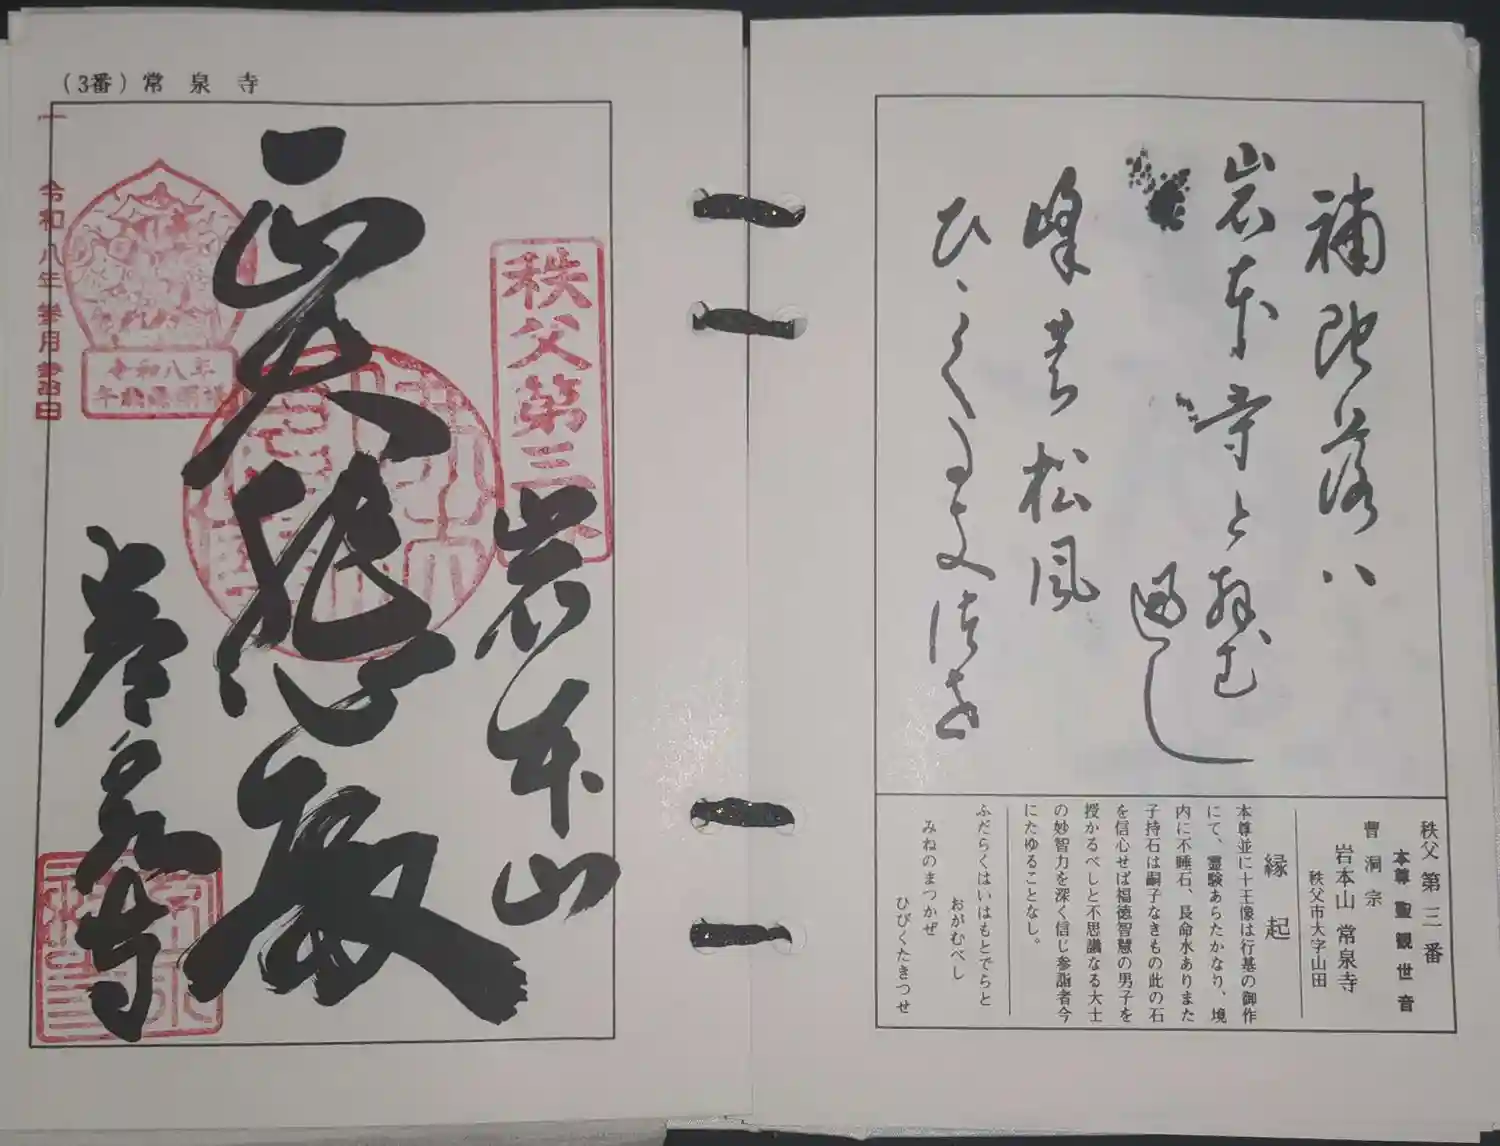 補陀落ハ
岩本寺と拝む
遍し
峰の松風
ひゝくたき津せ
秩父第三番
本尊 聖観世音
曹洞宗
岩本山 常泉寺
秩父市大字山田
縁起
本尊並に十王像は行基の御作
にて、霊験あらたかなり、境
内に不睡石、長命水ありまた
子持石は嗣子なきもの此の石
を信心せば福徳智慧の男子を
授かるべしと不思議なる大士
の妙智力を深く信じ参詣者今
にたゆることなし。
ふだらくはいはもとでらと
おがむべし
みねのまつかぜ
ひびくたきつせ
(3番) 常泉寺
秩父第三
岩本山
大悲殿
常泉寺
令和八年
令和八年